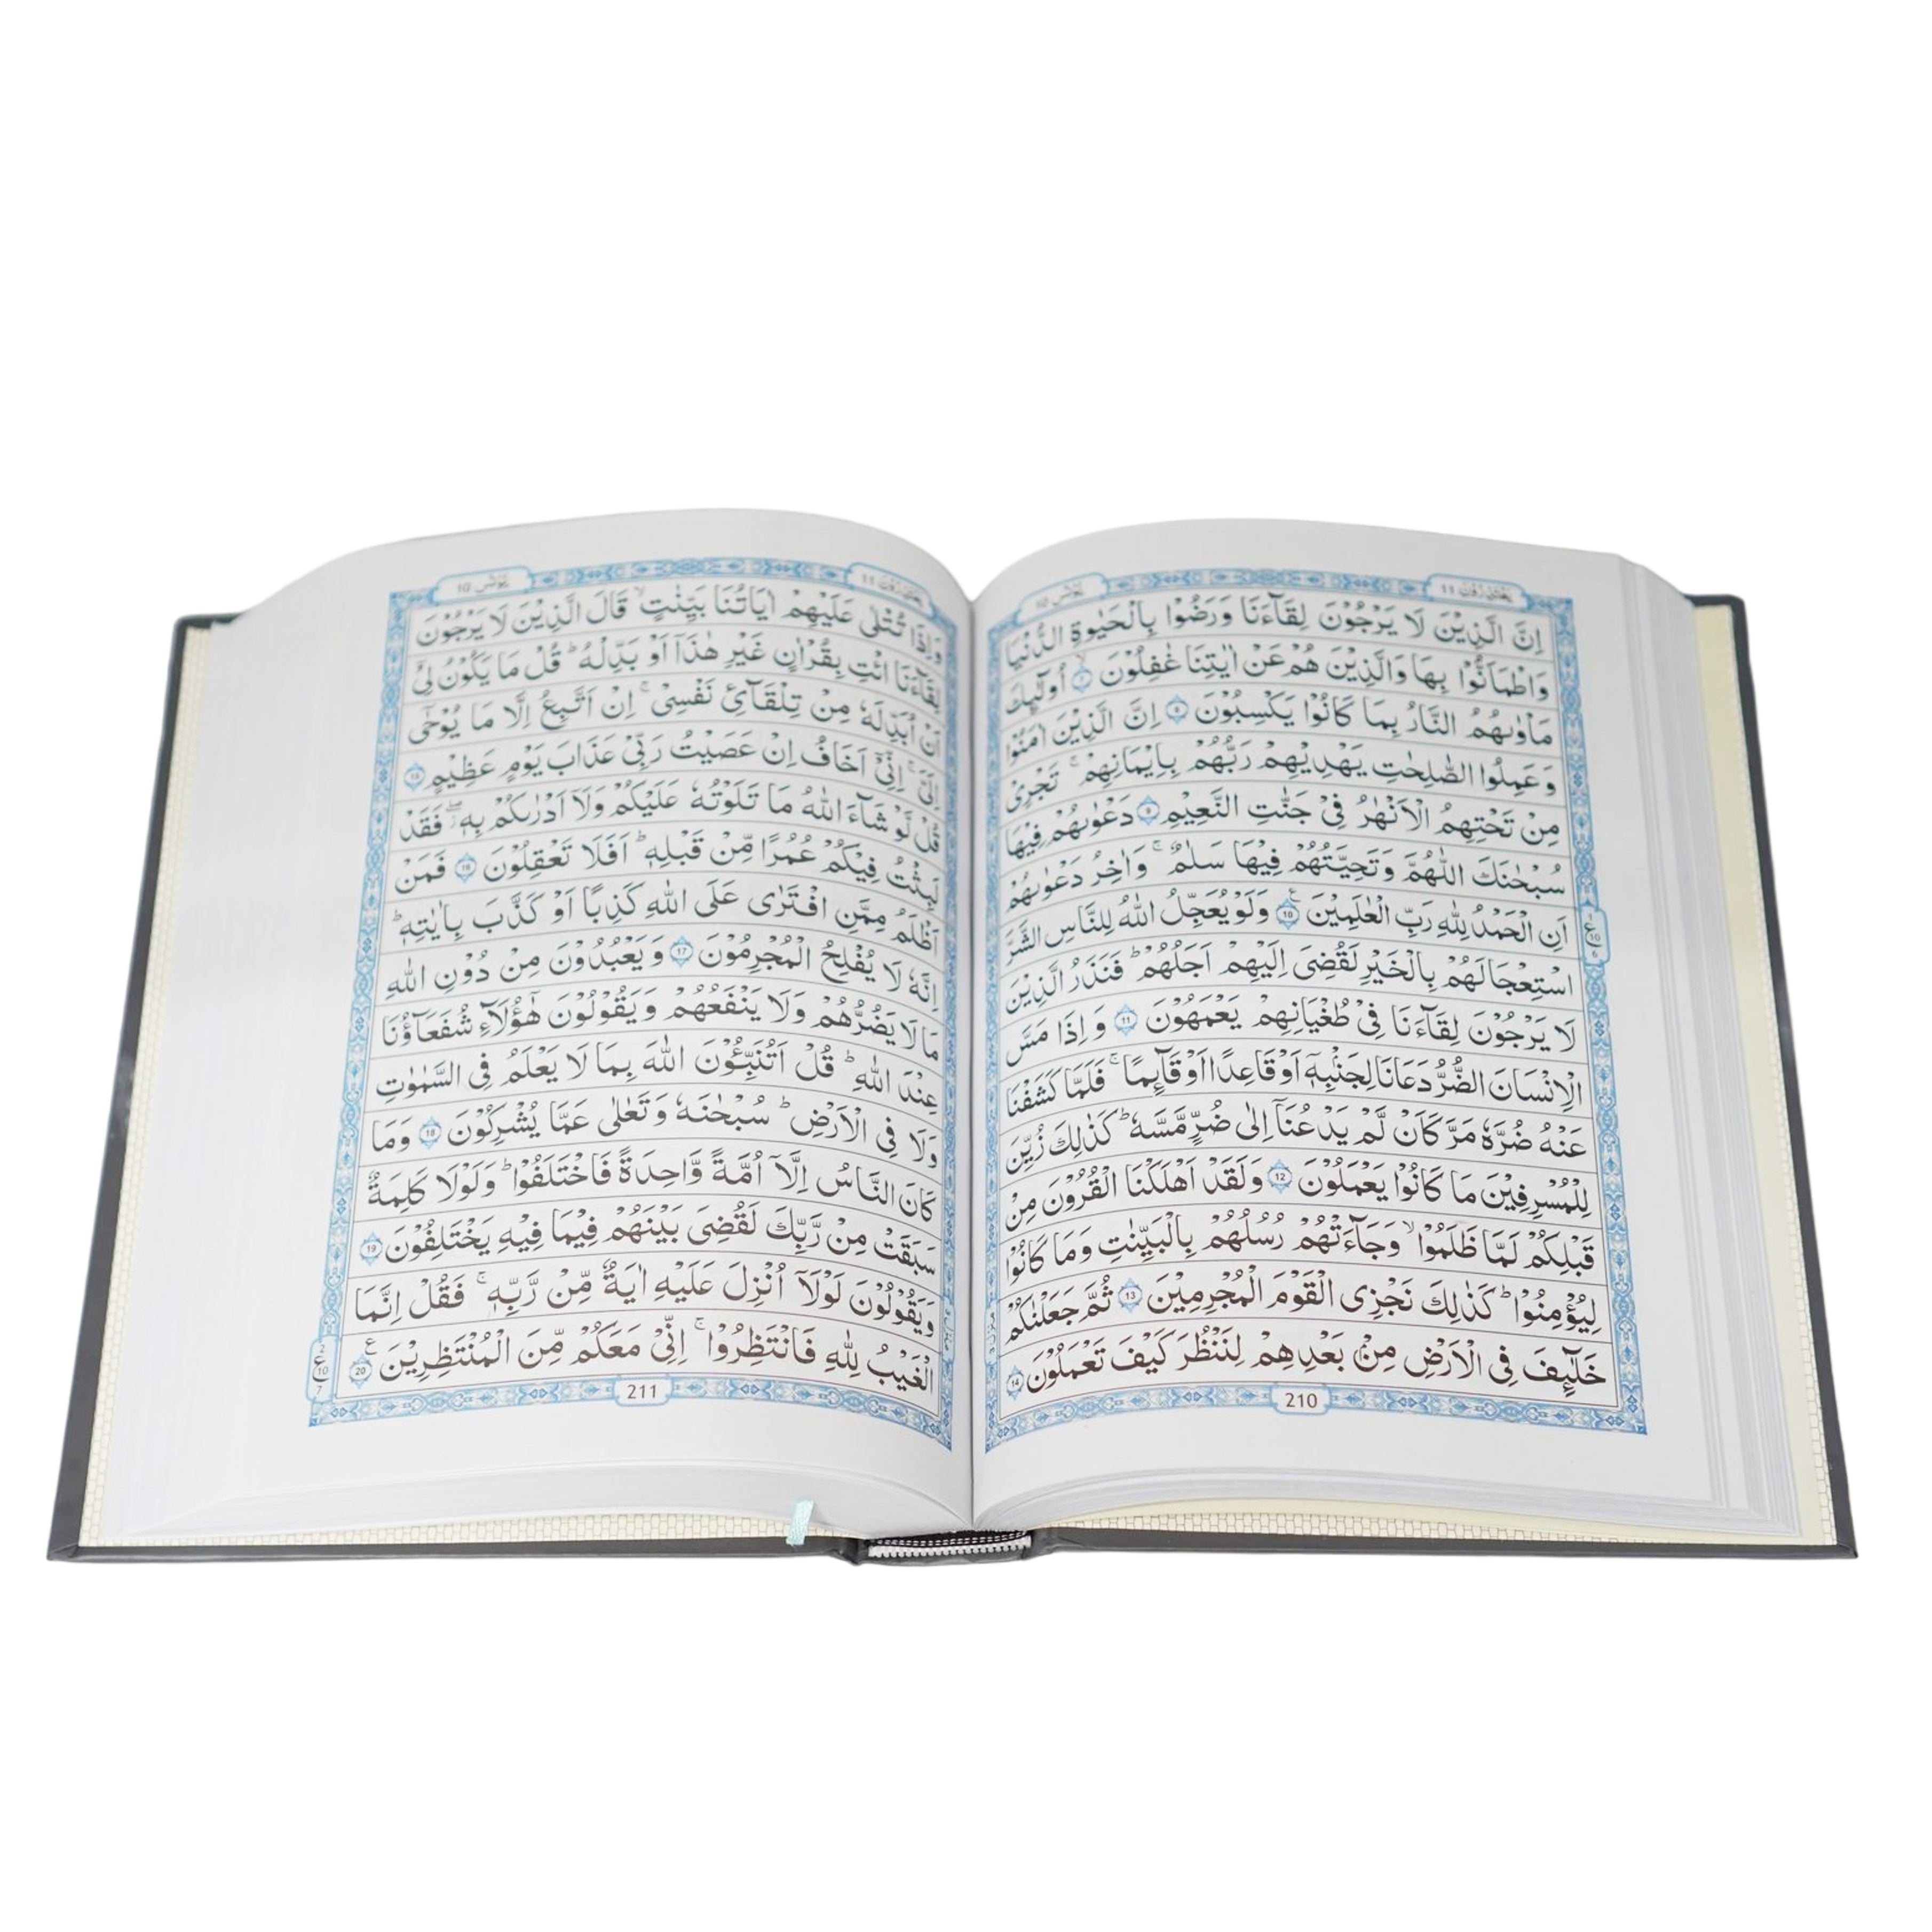 يَعْتَذِرُوْنَ 11
يُوْنُس 10
اِنَّ الَّذِيْنَ لَا يَرْجُوْنَ لِقَآءَنَا وَرَضُوْا بِالْحَيٰوةِ الدُّنْيَا
وَاطْمَاَنُّوْا بِهَا وَالَّذِيْنَ هُمْ عَنْ اٰيٰتِنَا غٰفِلُوْنَ ۙ 7 اُولٰٓئِكَ
مَاْوٰىهُمُ النَّارُ بِمَا كَانُوْا يَكْسِبُوْنَ 8 اِنَّ الَّذِيْنَ اٰمَنُوْا
وَعَمِلُوا الصّٰلِحٰتِ يَهْدِيْهِمْ رَبُّهُمْ بِاِيْمَانِهِمْ ۚ تَجْرِيْ
مِنْ تَحْتِهِمُ الْاَنْهٰرُ فِيْ جَنّٰتِ النَّعِيْمِ 9 دَعْوٰىهُمْ فِيْهَا
سُبْحٰنَكَ اللّٰهُمَّ وَتَحِيَّتُهُمْ فِيْهَا سَلٰمٌ ۚ وَاٰخِرُ دَعْوٰىهُمْ
اَنِ الْحَمْدُ لِلّٰهِ رَبِّ الْعٰلَمِيْنَ 10 وَلَوْ يُعَجِّلُ اللّٰهُ لِلنَّاسِ الشَّرَّ
اسْتِعْجَالَهُمْ بِالْخَيْرِ لَقُضِيَ اِلَيْهِمْ اَجَلُهُمْ ؕ فَنَذَرُ الَّذِيْنَ
لَا يَرْجُوْنَ لِقَآءَنَا فِيْ طُغْيَانِهِمْ يَعْمَهُوْنَ 11 وَاِذَا مَسَّ
الْاِنْسَانَ الضُّرُّ دَعَانَا لِجَنْۢبِهٖۤ اَوْ قَاعِدًا اَوْ قَآئِمًا ۚ فَلَمَّا كَشَفْنَا
عَنْهُ ضُرَّهٗ مَرَّ كَاَنْ لَّمْ يَدْعُنَاۤ اِلٰى ضُرٍّ مَّسَّهٗ ؕ كَذٰلِكَ زُيِّنَ
لِلْمُسْرِفِيْنَ مَا كَانُوْا يَعْمَلُوْنَ 12 وَلَقَدْ اَهْلَكْنَا الْقُرُوْنَ مِنْ
قَبْلِكُمْ لَمَّا ظَلَمُوْا ۙ وَجَآءَتْهُمْ رُسُلُهُمْ بِالْبَيِّنٰتِ وَمَا كَانُوْا
لِيُؤْمِنُوْا ؕ كَذٰلِكَ نَجْزِي الْقَوْمَ الْمُجْرِمِيْنَ 13 ثُمَّ جَعَلْنٰكُمْ
خَلٰٓئِفَ فِي الْاَرْضِ مِنْۢ بَعْدِهِمْ لِنَنْظُرَ كَيْفَ تَعْمَلُوْنَ 14
210
يَعْتَذِرُوْنَ 11
يُوْنُس 10
وَاِذَا تُتْلٰى عَلَيْهِمْ اٰيَاتُنَا بَيِّنٰتٍ ۙ قَالَ الَّذِيْنَ لَا يَرْجُوْنَ
لِقَآءَنَا ائْتِ بِقُرْاٰنٍ غَيْرِ هٰذَاۤ اَوْ بَدِّلْهُ ؕ قُلْ مَا يَكُوْنُ لِيْۤ
اَنْ اُبَدِّلَهٗ مِنْ تِلْقَآئِ نَفْسِيْ ۚ اِنْ اَتَّبِعُ اِلَّا مَا يُوْحٰۤى
اِلَيَّ ۚ اِنِّيْۤ اَخَافُ اِنْ عَصَيْتُ رَبِّيْ عَذَابَ يَوْمٍ عَظِيْمٍ 15
قُلْ لَّوْ شَآءَ اللّٰهُ مَا تَلَوْتُهٗ عَلَيْكُمْ وَلَاۤ اَدْرٰىكُمْ بِهٖ ۖ فَقَدْ
لَبِثْتُ فِيْكُمْ عُمُرًا مِّنْ قَبْلِهٖ ؕ اَفَلَا تَعْقِلُوْنَ 16 فَمَنْ
اَظْلَمُ مِمَّنِ افْتَرٰى عَلَى اللّٰهِ كَذِبًا اَوْ كَذَّبَ بِاٰيٰتِهٖ ؕ
اِنَّهٗ لَا يُفْلِحُ الْمُجْرِمُوْنَ 17 وَيَعْبُدُوْنَ مِنْ دُوْنِ اللّٰهِ
مَا لَا يَضُرُّهُمْ وَلَا يَنْفَعُهُمْ وَيَقُوْلُوْنَ هٰۤؤُلَآءِ شُفَعَآؤُنَا
عِنْدَ اللّٰهِ ؕ قُلْ اَتُنَبِّـُٔوْنَ اللّٰهَ بِمَا لَا يَعْلَمُ فِي السَّمٰوٰتِ
وَلَا فِي الْاَرْضِ ؕ سُبْحٰنَهٗ وَتَعٰلٰى عَمَّا يُشْرِكُوْنَ 18 وَمَا
كَانَ النَّاسُ اِلَّاۤ اُمَّةً وَّاحِدَةً فَاخْتَلَفُوْا ؕ وَلَوْلَا كَلِمَةٌ
سَبَقَتْ مِنْ رَّبِّكَ لَقُضِيَ بَيْنَهُمْ فِيْمَا فِيْهِ يَخْتَلِفُوْنَ 19
وَيَقُوْلُوْنَ لَوْلَاۤ اُنْزِلَ عَلَيْهِ اٰيَةٌ مِّنْ رَّبِّهٖ ۚ فَقُلْ اِنَّمَا
الْغَيْبُ لِلّٰهِ فَانْتَظِرُوْا ۚ اِنِّيْ مَعَكُمْ مِّنَ الْمُنْتَظِرِيْنَ 20
211